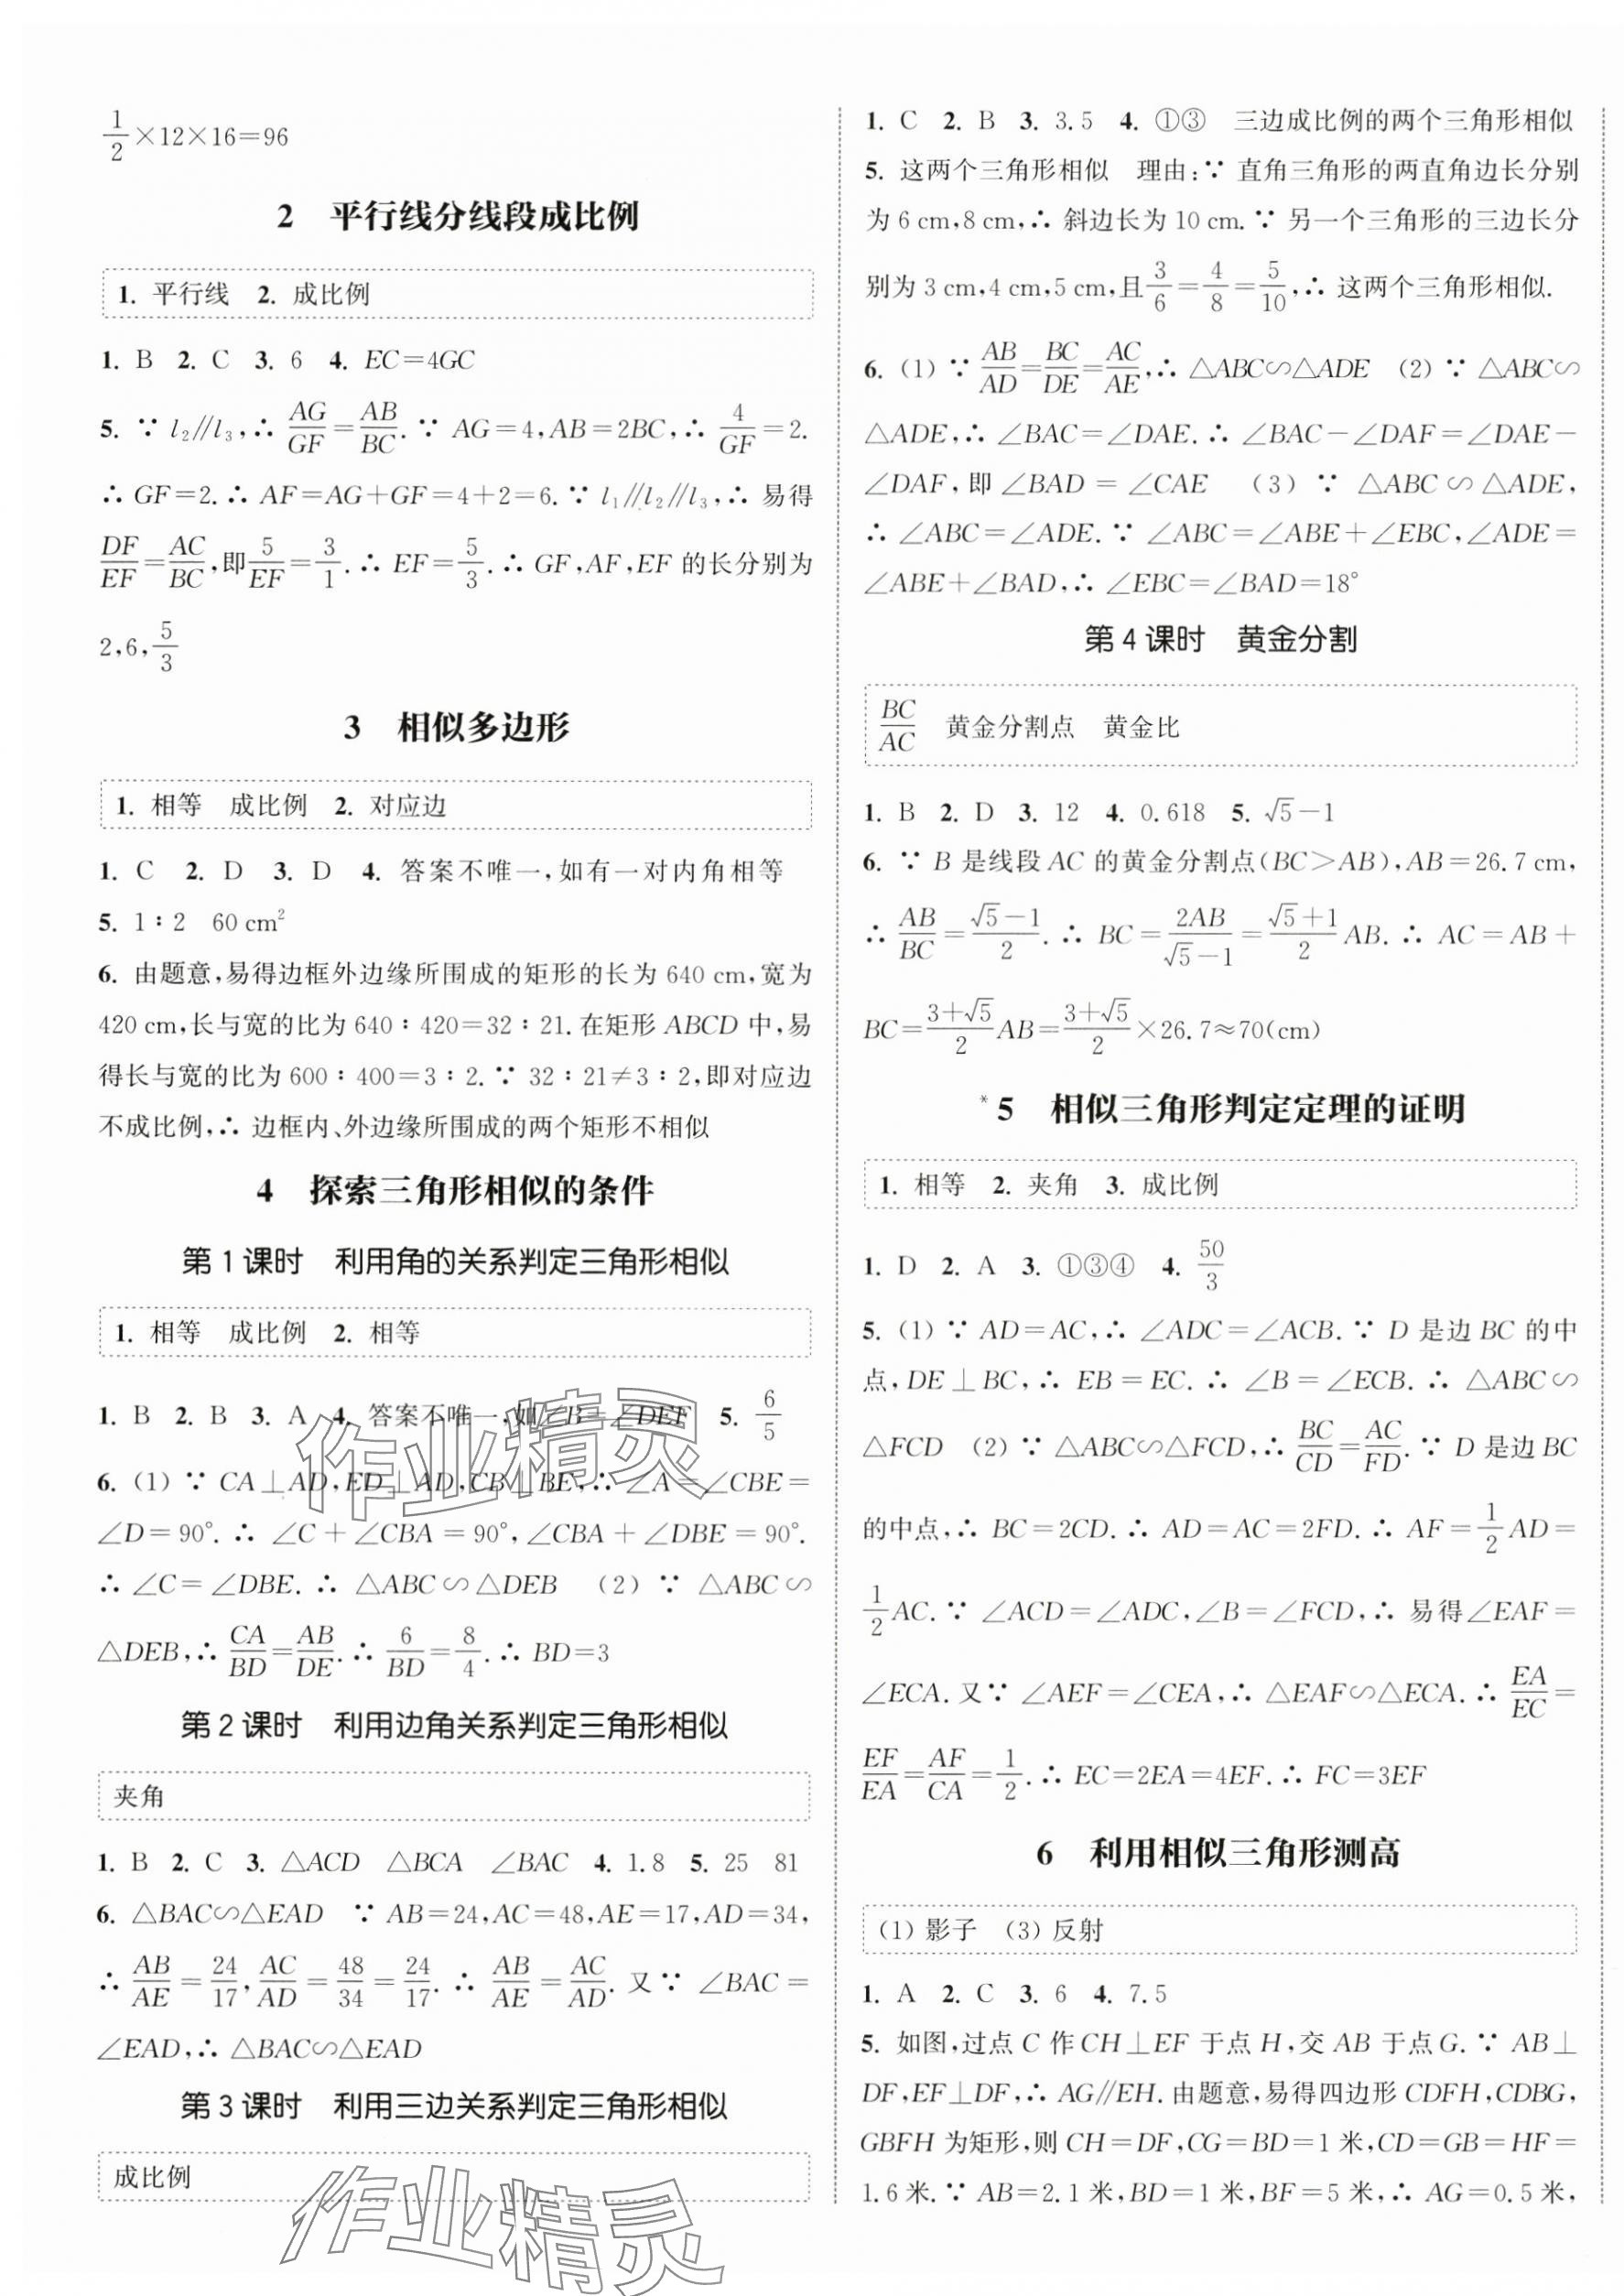 1/2×12×16=96
2 平行线分线段成比例
1. 平行线 2. 成比例
1. B 2. C 3. 6 4. EC=4GC
5. ∵ l₂∥l₃,∴ AG/GF=AB/BC. ∵ AG=4,AB=2BC,∴ 4/GF=2.
∴ GF=2.∴ AF=AG+GF=4+2=6.∵ l₁∥l₂∥l₃,∴ 易得
DF/EF=AC/BC,即5/EF=3/1.∴ EF=5/3.∴ GF,AF,EF 的长分别为
2,6,5/3
3 相似多边形
1. 相等 成比例 2. 对应边
1. C 2. D 3. D 4. 答案不唯一,如有一对内角相等
5. 1∶2 60 cm²
6. 由题意,易得边框外边缘所围成的矩形的长为 640 cm,宽为
420 cm,长与宽的比为 640∶420=32∶21.在矩形 ABCD 中,易
得长与宽的比为 600∶400=3∶2.∵ 32∶21≠3∶2,即对应边
不成比例,∴ 边框内、外边缘所围成的两个矩形不相似
4 探索三角形相似的条件
第 1 课时 利用角的关系判定三角形相似
1. 相等 成比例 2. 相等
1. B 2. B 3. A 4. 答案不唯一,如∠B=∠DEF 5. 6/5
6. (1) ∵ CA⊥AD,ED⊥AD,CB⊥BE,∴ ∠A=∠CBE=
∠D=90°.∴ ∠C+∠CBA=90°,∠CBA+∠DBE=90°.
∴ ∠C=∠DBE.∴ △ABC∽△DEB (2) ∵ △ABC∽
△DEB,∴ CA/BD=AB/DE.∴ 6/BD=8/4.∴ BD=3
第 2 课时 利用边角关系判定三角形相似
夹角
1. B 2. C 3. △ACD △BCA ∠BAC 4. 1.8 5. 25 81
6. △BAC∽△EAD ∵ AB=24,AC=48,AE=17,AD=34,
∴ AB/AE=24/17,AC/AD=48/34=24/17.∴ AB/AE=AC/AD.又∵ ∠BAC=
∠EAD,∴ △BAC∽△EAD
第 3 课时 利用三边关系判定三角形相似
成比例
1. C 2. B 3. 3.5 4. ①③ 三边成比例的两个三角形相似
5. 这两个三角形相似 理由:∵ 直角三角形的两直角边长分别
为 6 cm,8 cm,∴ 斜边长为 10 cm.∵ 另一个三角形的三边长分
别为 3 cm,4 cm,5 cm,且3/6=4/8=5/10,∴ 这两个三角形相似.
6. (1) ∵ AB/AD=BC/DE=AC/AE,∴ △ABC∽△ADE (2) ∵ △ABC∽
△ADE,∴ ∠BAC=∠DAE.∴ ∠BAC-∠DAF=∠DAE-
∠DAF,即 ∠BAD=∠CAE (3) ∵ △ABC∽△ADE,
∴ ∠ABC=∠ADE.∵ ∠ABC=∠ABE+∠EBC,∠ADE=
∠ABE+∠BAD,∴ ∠EBC=∠BAD=18°
第 4 课时 黄金分割
BC/AC 黄金分割点 黄金比
1. B 2. D 3. 12 4. 0.618 5. √5-1
6. ∵ B 是线段 AC 的黄金分割点(BC>AB),AB=26.7 cm,
∴ AB/BC=(√5-1)/2.∴ BC=2AB/(√5-1)=(√5+1)/2 AB.∴ AC=AB+
BC=(3+√5)/2 AB=(3+√5)/2×26.7≈70(cm)
*5 相似三角形判定定理的证明
1. 相等 2. 夹角 3. 成比例
1. D 2. A 3. ①③④ 4. 50/3
5. (1) ∵ AD=AC,∴ ∠ADC=∠ACB.∵ D 是边 BC 的中
点,DE⊥BC,∴ EB=EC.∴ ∠B=∠ECB.∴ △ABC∽
△FCD (2) ∵ △ABC∽△FCD,∴ BC/CD=AC/FD.∵ D 是边 BC
的中点,∴ BC=2CD.∴ AD=AC=2FD.∴ AF=1/2 AD=
1/2 AC.∵ ∠ACD=∠ADC,∠B=∠FCD,∴ 易得∠EAF=
∠ECA.又∵ ∠AEF=∠CEA,∴ △EAF∽△ECA.∴ EA/EC=
EF/EA=AF/CA=1/2.∴ EC=2EA=4EF.∴ FC=3EF
6 利用相似三角形测高
(1) 影子 (3) 反射
1. A 2. C 3. 6 4. 7.5
5. 如图,过点 C 作 CH⊥EF 于点 H,交 AB 于点 G.∵ AB⊥
DF,EF⊥DF,∴ AG∥EH.由题意,易得四边形 CDFH,CDBG,
GBFH 为矩形,则 CH=DF,CG=BD=1 米,CD=GB=HF=
1.6 米.∵ AB=2.1 米,BD=1 米,BF=5 米,∴ AG=0.5 米,
作业精灵
作业精灵